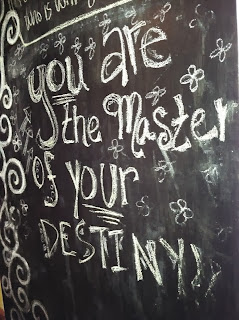 who is
you are
the master
of your
DESTINY!!